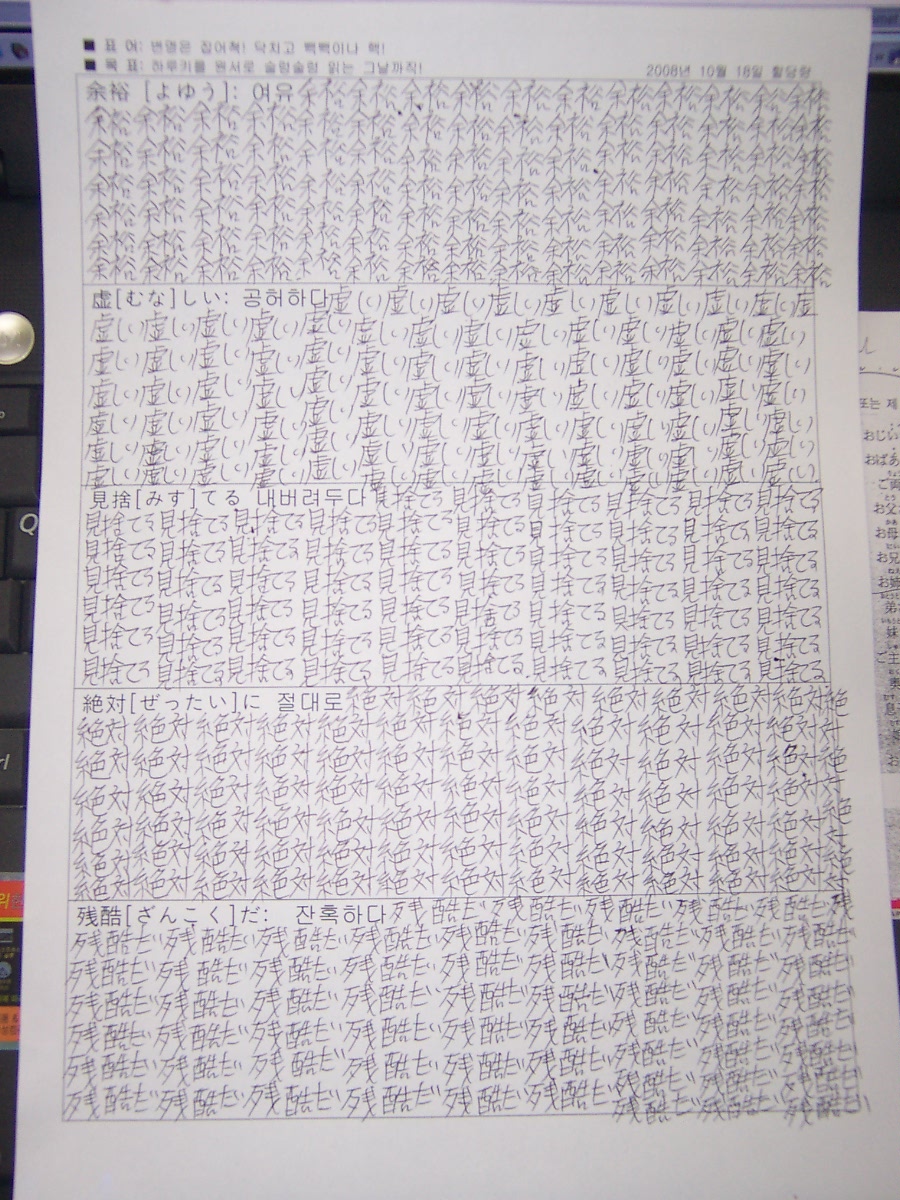 ■ 표 어: 변명은 집어쳐! 닥치고 빽빽이나 핵!
■ 목 표: 하루키를 원서로 술렁술렁 읽는 그날까지!
2008년 10월 18일 할당량
余裕 [よゆう]: 여유 余裕 余裕 余裕 余裕 余裕 余裕 余裕 余裕 余裕 余裕
余裕 余裕 余裕 余裕 余裕 余裕 余裕 余裕 余裕 余裕 余裕 余裕 余裕 余裕
余裕 余裕 余裕 余裕 余裕 余裕 余裕 余裕 余裕 余裕 余裕 余裕 余裕 余裕
余裕 余裕 余裕 余裕 余裕 余裕 余裕 余裕 余裕 余裕 余裕 余裕 余裕 余裕
余裕 余裕 余裕 余裕 余裕 余裕 余裕 余裕 余裕 余裕 余裕 余裕 余裕 余裕
余裕 余裕 余裕 余裕 余裕 余裕 余裕 余裕 余裕 余裕 余裕 余裕 余裕 余裕
余裕 余裕 余裕 余裕 余裕 余裕 余裕 余裕 余裕 余裕 余裕 余裕 余裕 余裕
虚[むな]しい: 공허하다 虚しい 虚しい 虚しい 虚しい 虚しい 虚しい 虚しい 虚しい 虚
虚しい 虚しい 虚しい 虚しい 虚しい 虚しい 虚しい 虚しい 虚しい 虚しい 虚しい 虚しい 虚しい 虚しい
虚しい 虚しい 虚しい 虚しい 虚しい 虚しい 虚しい 虚しい 虚しい 虚しい 虚しい 虚しい 虚しい 虚しい
虚しい 虚しい 虚しい 虚しい 虚しい 虚しい 虚しい 虚しい 虚しい 虚しい 虚しい 虚しい 虚しい 虚しい
虚しい 虚しい 虚しい 虚しい 虚しい 虚しい 虚しい 虚しい 虚しい 虚しい 虚しい 虚しい 虚しい 虚しい
虚しい 虚しい 虚しい 虚しい 虚しい 虚しい 虚しい 虚しい 虚しい 虚しい 虚しい 虚しい 虚しい 虚しい
虚しい 虚しい 虚しい 虚しい 虚しい 虚しい 虚しい 虚しい 虚しい 虚しい 虚しい 虚しい 虚しい 虚しい
見捨[みす]てる 내버려두다 見捨てる 見捨てる 見捨てる 見捨てる 見捨てる 見捨てる
見捨てる 見捨てる 見捨てる 見捨てる 見捨てる 見捨てる 見捨てる 見捨てる 見捨てる 見捨てる
見捨てる 見捨てる 見捨てる 見捨てる 見捨てる 見捨てる 見捨てる 見捨てる 見捨てる 見捨てる
見捨てる 見捨てる 見捨てる 見捨てる 見捨てる 見捨てる 見捨てる 見捨てる 見捨てる 見捨てる
見捨てる 見捨てる 見捨てる 見捨てる 見捨てる 見捨てる 見捨てる 見捨てる 見捨てる 見捨てる
見捨てる 見捨てる 見捨てる 見捨てる 見捨てる 見捨てる 見捨てる 見捨てる 見捨てる 見捨てる
見捨てる 見捨てる 見捨てる 見捨てる 見捨てる 見捨てる 見捨てる 見捨てる 見捨てる 見捨てる
絶対[ぜったい]に 절대로 絶対 絶対 絶対 絶対 絶対 絶対 絶対 絶対 絶
絶対 絶対 絶対 絶対 絶対 絶対 絶対 絶対 絶対 絶対 絶対 絶対 絶対
絶対 絶対 絶対 絶対 絶対 絶対 絶対 絶対 絶対 絶対 絶対 絶対 絶
絶対 絶対 絶対 絶対 絶対 絶対 絶対 絶対 絶対 絶対 絶対 絶対
絶対 絶対 絶対 絶対 絶対 絶対 絶対 絶対 絶対 絶対 絶対 絶対 絶対
絶対 絶対 絶対 絶対 絶対 絶対 絶対 絶対 絶対 絶対 絶対 絶対 絶
絶対 絶対 絶対 絶対 絶対 絶対 絶対 絶対 絶対 絶対 絶対 絶対
残酷[ざんこく]だ: 잔혹하다 残酷だ 残酷だ 残酷だ 残酷だ 残
残酷だ 残酷だ 残酷だ 残酷だ 残酷だ 残酷だ 残酷だ 残酷だ
残酷だ 残酷だ 残酷だ 残酷だ 残酷だ 残酷だ 残酷だ 残酷だ 残酷だ
残酷だ 残酷だ 残酷だ 残酷だ 残酷だ 残酷だ 残酷だ 残酷だ 残酷だ
残酷だ 残酷だ 残酷だ 残酷だ 残酷だ 残酷だ 残酷だ 残酷だ 残酷だ
残酷だ 残酷だ 残酷だ 残酷だ 残酷だ 残酷だ 残酷だ 残酷だ 残酷だ
残酷だ 残酷だ 残酷だ 残酷だ 残酷だ 残酷だ 残酷だ 残酷だ 残酷だ
또는 제
おじい
おばあ
ご両
お父
お母
お兄
お姉
弟
妹
ご主
男
息
お
Q